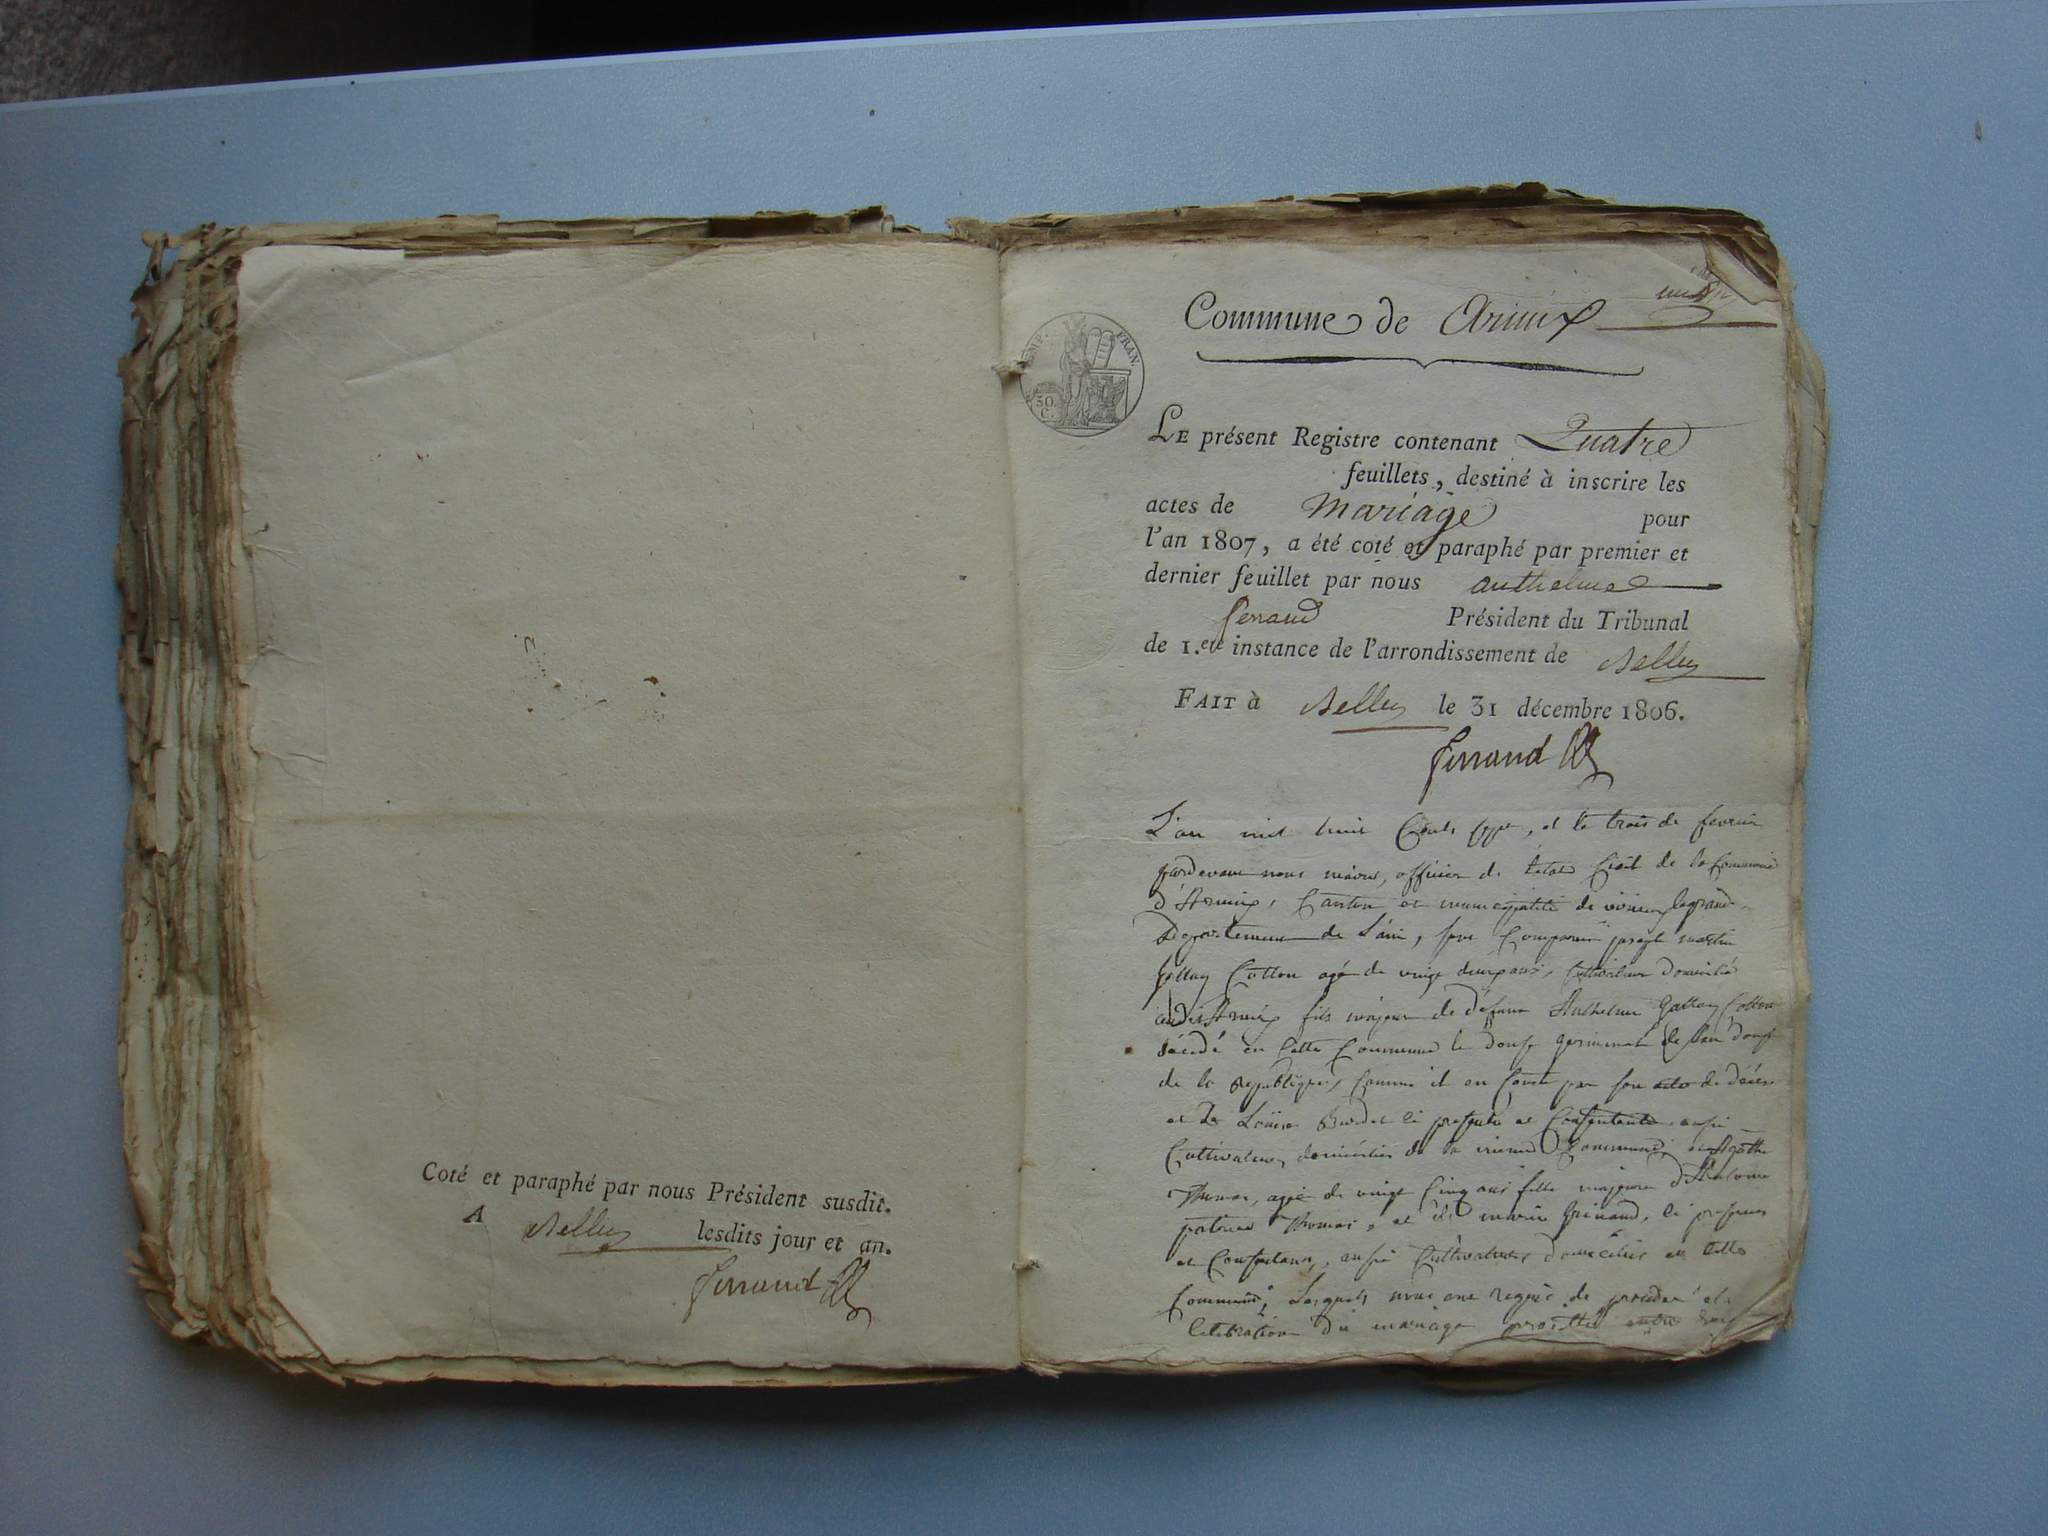 Coté et paraphé par nous Président susdit.
A Belley lesdits jour et an.
Ferrand
Commune de Armix
EMP. FRAN.
50. C.
LE présent Registre contenant Quatre
feuillets, destiné à inscrire les
actes de Mariage pour
l'an 1807, a été coté et paraphé par premier et
dernier feuillet par nous anthelme
ferrand Président du Tribunal
de 1.ere instance de l'arrondissement de Belley
FAIT à Belley le 31 décembre 1806.
Ferrand
L'an mil huit Cents sept, et le trois de fevrier
pardevant nous maire, officier de l'etat Civil de la Commune
d'Armix, Canton et municipalité de virieu legrand
Departement de L'ain, sont Comparu joseph martin
gallay Cotton agé de vingt deux ans, Cultivateur domicilié
audit Armix fils majeur de défunt Anthelme Gallay Cotton
décédé en Cette Commune le douse germinal de l'an douse
de la Republique, Comme il en Conste par son acte de décés
et de Loüise Burdet ci presente et Consentante aussi
Cultivateurs, domiciliés de la mème Commune, et Agathe
Thomas, agée de vingt Cinq ans fille majeure d'Antoine
Thomas, et de marie
et Consentans, aussi Cultivateurs domiciliés en Cette
Commune, Lesquels nous ont requis de proceder a la
Celebration du mariage projetté entre eux